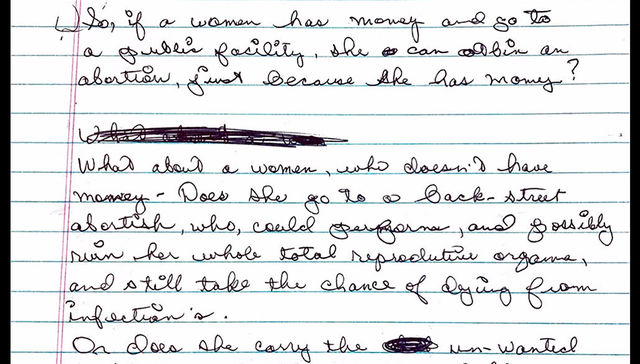 1) So, if a women has money and go to
a public facility, she can otbin an
abortion, just because she has money?
What about a women, who doesn't have
money - Does she go to a back-street
abortish, who, could performe, and possibly
ruin her whole total reproductive organs,
and still take the chance of dying from
infection's.
Or does she carry the un-wanted